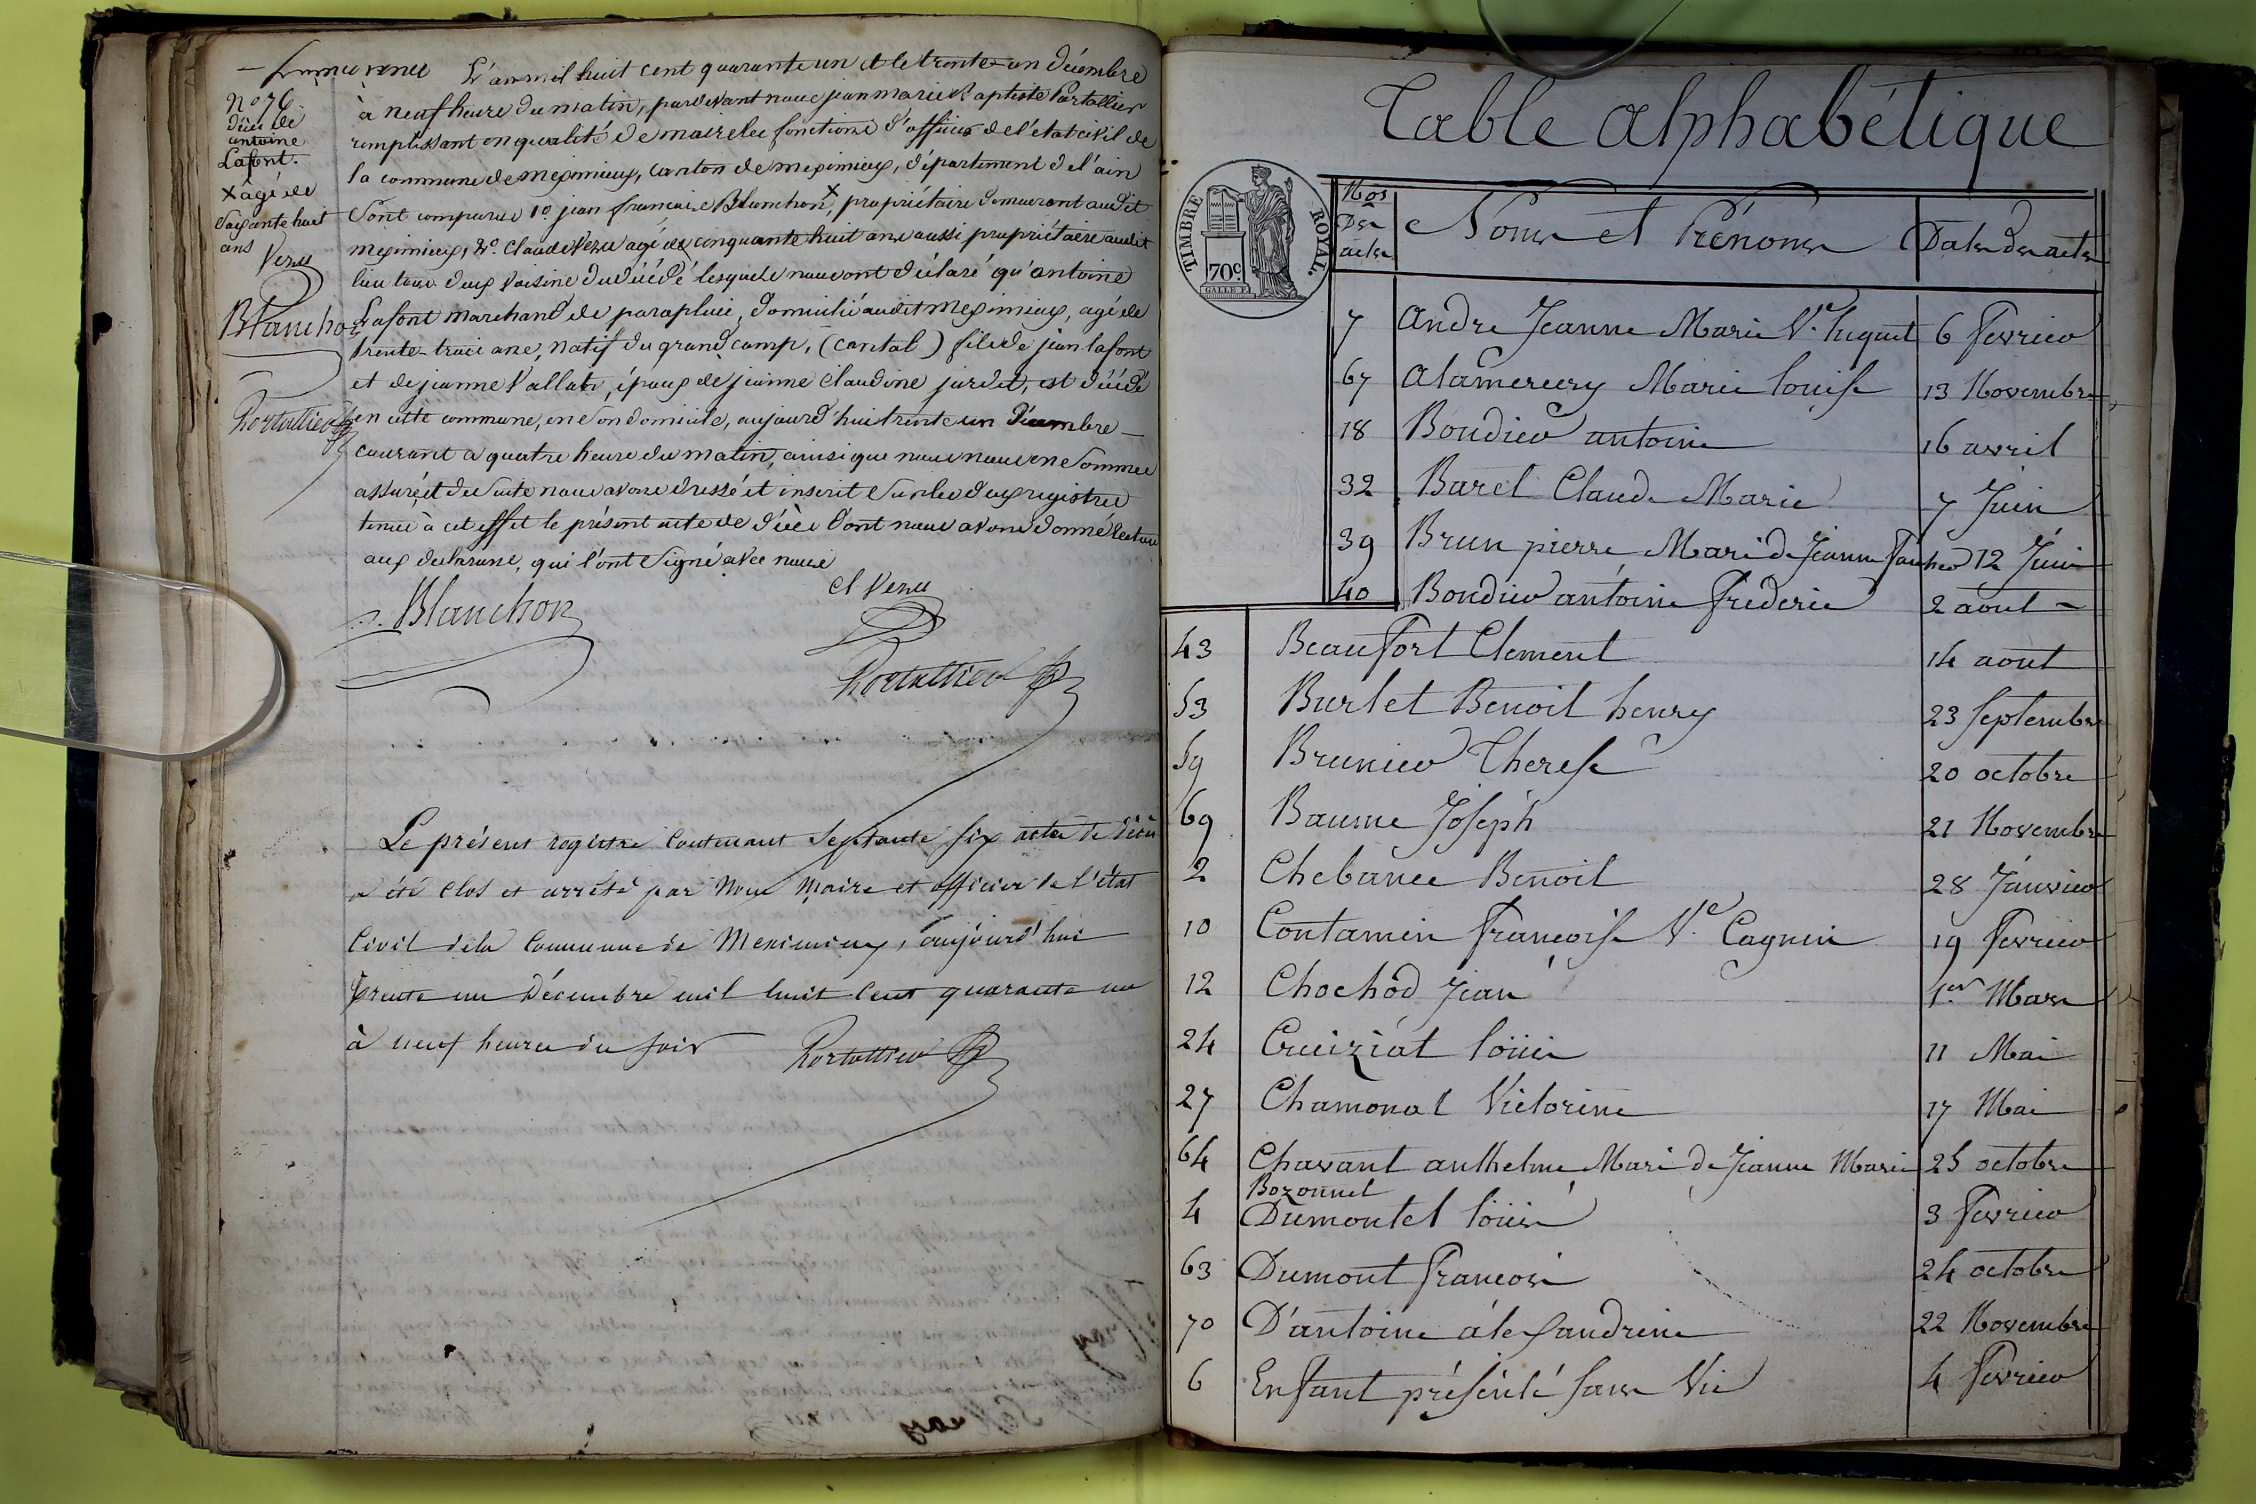 L'an mil huit cent quarante un et le trente-un décembre
à neuf heure du matin, pardevant nous jean marie Baptiste Portallier
remplissant en qualité de maire les fonctions d'officier de l'état civil de
la commune de meximieux, canton de meximieux, département de l'ain
Sont comparus 1º jean francois Blanchon x, propriétaire demeurant audit
meximieux, 2º. Claude Venu agé de cinquante huit ans aussi propriétaire audit
lieu tous deux voisins du décédé lesquels nous ont déclaré qu'antoine
Lafont marchand de parapluie, domicilié audit meximieux, agé de
trente-trois ans, natif du grand camp, (cantal) fils de jean lafont
et de jeanne Vallat, époux de jeanne claudine jurdit, est décédé
en cette commune, en son domicile, aujourd'hui trente un décembre
courant à quatre heure du matin, ainsi que nous nous en sommes
assuré, et de suite nous avons dressé et inscrit sur les deux registres
tenus à cet effet le présent acte de décès dont nous avons donné lecture
aux déclarans, qui l'ont signé avec nous
Nº 76.
décès de
antoine
Lafont.
x âgé de
soixante huit
ans
Venu
Blanchon
Portallier
Blanchon
Cl Venu
Portallier
Le présent registre contenant septante six actes de décès
a été clos et arrêté par nous maire et officier de l'état
civil de la commune de Meximieux, aujourd'hui
trente un décembre mil huit cent quarante un
à neuf heures du soir
Portallier
Table alphabétique
TIMBRE ROYAL.
70c.
GALLE F.
Nos Des actes Noms et Prénoms Dates des actes
7 Andre Jeanne Marie Ve huguet 6 fevrier
67 Alamercery Marie louise 13 Novembre
18 Bondier antoine 16 avril
32 Baret Claude Marie 7 Juin
39 Brun pierre Mari de Jeanne faucher 12 Juin
40 Bondier antoine frederic 2 aout
43 Beaufort Clement 14 aout
53 Burlet Benoit henry 23 septembre
59 Brunier Therese 20 octobre
69 Baume Joseph 21 Novembre
2 Chebance Benoit 28 Janvier
10 Contamin francoise Ve Cagnin 19 fevrier
12 Chochod Jean 1er Mars
24 Cruiziat loüis 11 Mai
27 Chamonal Victorine 17 Mai
64 Chavant anthelme Mari de Jeanne Marie 25 octobre
Bozonnet
4 Dumontet loüis 3 fevrier
63 Dumont francois 24 octobre
70 D'antoine alexandrine 22 Novembre
6 Enfant présénté sans Vie 4 fevrier